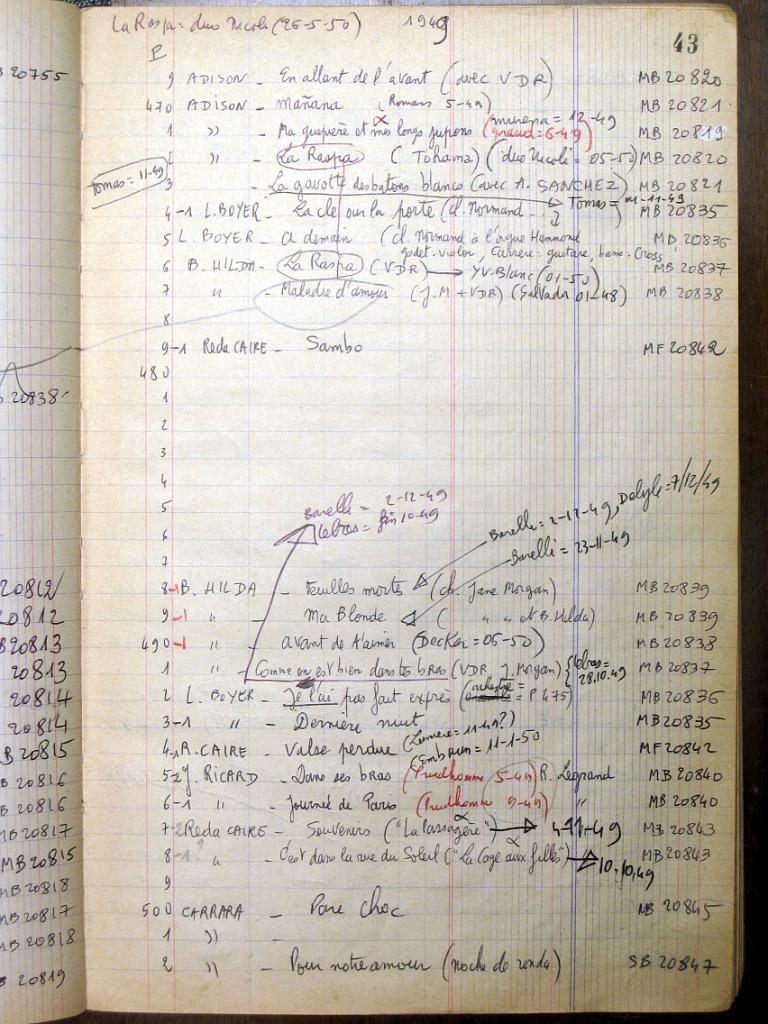 La Raspa: duo Nicoli (26-5-50) 1949 43
P
9 ADISON - En allant de l'avant (avec VDR) MB 20820
470 ADISON - mañana (Romans 5-49) MB 20821
1 " - Ma guêpière et mes longs jupons (giraud = 6-49) = 12-49 MB 20819
2 " - La Raspa (Tohama) ("duo Nicoli" = 05-50) MB 20820
Tomas = 11-49
3 - La gavotte des batons blancs (avec A. SANCHEZ) MB 20821
Tomas = 11-49
4-1 L. BOYER - La clé sur la porte (cl. Normand MB 20835
5 L. BOYER - A demain (cl. Normand à l'orgue Hammond MB 20836
godet-violon, Carrère-guitare, basse-Cross)
6 B. HILDA - La Raspa (VDR) → YV. Blanc (01-50) MB 20837
7 " - Maladie d'amour (J.M + VDR) (Salvador 01-48) MB 20838
8
9-1 Reda CAIRE - Sambo MF 20842
480
1
2
3
4
5
6
7
Barelle = 2-12-49
Lebras = fin 10-49
Barelle = 2-12-49, Delyle = 7/12/49
Barelli = 23-11-49
8-1 B. HILDA - Feuilles mortes (ch. Jane Morgan) MB 20839
9-1 " - Ma Blonde ( " " et B. Hilda) MB 20839
490-1 " - avant de t'aimer (Decker = 06-50) MB 20838
1 " - Comme on est bien dans tes bras (VDR J. Morgan) {Lebras = 28.10.49 MB 20837
2 L. BOYER - Je l'ai pas fait exprès (orchestre = P 475) MB 20836
3-1 " - Dernière nuit MB 20835
(Lumière = 11-49?)
4-1 R. CAIRE - Valse perdue (Embrun = 11-1-50 MF 20842
5-2 J. RICARD - Dans ses bras (Prudhomme 5-49) R. Legrand MB 20840
6-1 " - Journée de Paris (Prudhomme 9-49) " MB 20840
7-2 Reda CAIRE - Souvenirs ("La Passagère") → 4-11-49 MB 20843
8-1? " - C'est dans la rue du Soleil ("La Cage aux filles") → 10.10.49 MB 20843
9
500 CARRARA - Pare choc MB 20845
1 " -
2 " - Pour notre amour (noche de ronda) SB 20847
20755
20838
20812
20812
B20813
20813
20814
20814
B 20815
B 20816
B 20816
MB 20817
MB 20815
MB 20818
MB 20817
MB 20818
B 20819